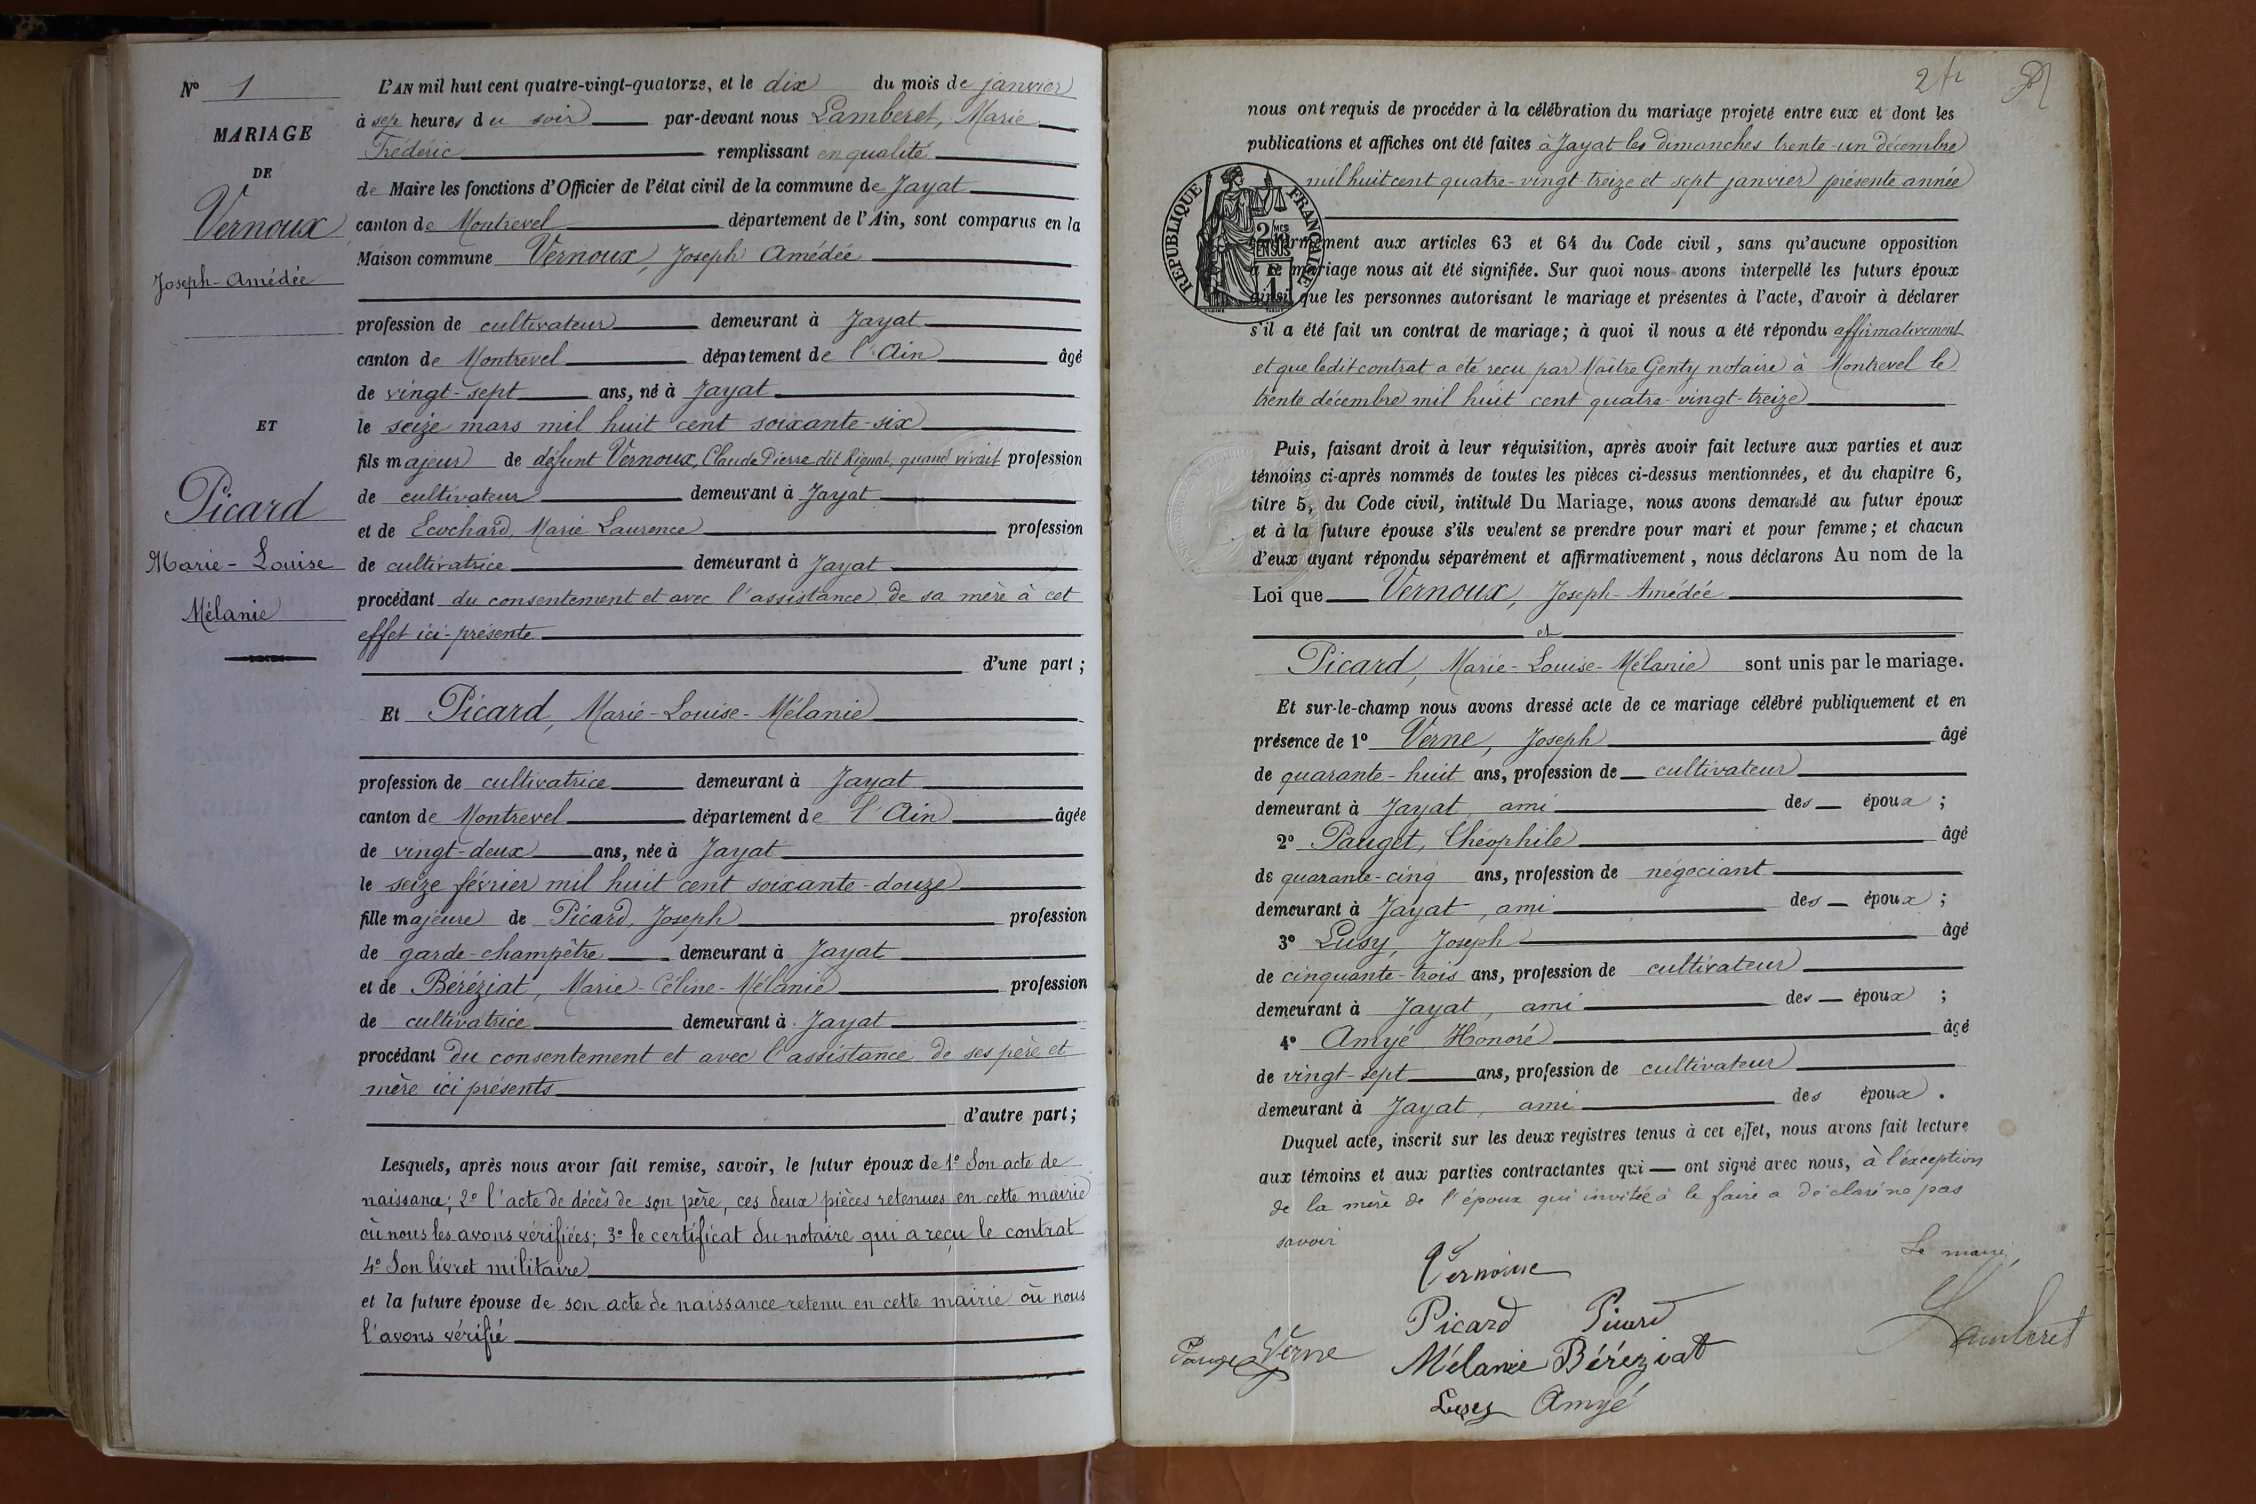 N° 1
MARIAGE
DE
Vernoux
Joseph-Amédée
ET
Picard
Marie-Louise
Mélanie
L'AN mil huit cent quatre-vingt-quatorze, et le dix du mois de janvier
à sep heures du soir par-devant nous Lamberet, Marie
Frédéric remplissant en qualité
de Maire les fonctions d'Officier de l'état civil de la commune de Jayat
canton de Montrevel département de l'Ain, sont comparus en la
Maison commune Vernoux, Joseph Amédée
profession de cultivateur demeurant à Jayat
canton de Montrevel département de l'Ain âgé
de vingt-sept ans, né à Jayat
le seize mars mil huit cent soixante-six
fils majeur de défunt Vernoux, Claude Pierre dit quand vivait profession
de cultivateur demeurant à Jayat
et de Ecochard, Marie Laurence profession
de cultivatrice demeurant à Jayat
procédant du consentement et avec l'assistance de sa mère à cet
effet ici-présente
d'une part ;
Et Picard, Marie-Louise-Mélanie
profession de cultivatrice demeurant à Jayat
canton de Montrevel département de l'Ain âgée
de vingt-deux ans, née à Jayat
le seize février mil huit cent soixante-douze
fille majeure de Picard, Joseph profession
de garde-champêtre demeurant à Jayat
et de Béréziat, Marie-Céline-Mélanie profession
de cultivatrice demeurant à Jayat
procédant du consentement et avec l'assistance de ses père et
mère ici présents
d'autre part ;
Lesquels, après nous avoir fait remise, savoir, le futur époux de 1° Son acte de
naissance ; 2° l'acte de décès de son père, ces deux pièces retenues en cette mairie
où nous les avons vérifiées ; 3° le certificat du notaire qui a reçu le contrat
4° Son livret militaire
et la future épouse de son acte de naissance retenu en cette mairie où nous
l'avons vérifié
nous ont requis de procéder à la célébration du mariage projeté entre eux et dont les
publications et affiches ont été faites à Jayat les dimanches trente-un décembre
mil huit cent quatre-vingt treize et sept janvier présente année
RÉPUBLIQUE FRANÇAISE
conformément aux articles 63 et 64 du Code civil, sans qu'aucune opposition
à ce mariage nous ait été signifiée. Sur quoi nous avons interpellé les futurs époux
ainsi que les personnes autorisant le mariage et présentes à l'acte, d'avoir à déclarer
s'il a été fait un contrat de mariage ; à quoi il nous a été répondu affirmativement
et que ledit contrat a été reçu par Maître Genty notaire à Montrevel le
trente décembre mil huit cent quatre-vingt-treize
Puis, faisant droit à leur réquisition, après avoir fait lecture aux parties et aux
témoins ci-après nommés de toutes les pièces ci-dessus mentionnées, et du chapitre 6,
titre 5, du Code civil, intitulé Du Mariage, nous avons demandé au futur époux
et à la future épouse s'ils veulent se prendre pour mari et pour femme ; et chacun
d'eux ayant répondu séparément et affirmativement, nous déclarons Au nom de la
Loi que Vernoux, Joseph-Amédée
et
Picard, Marie-Louise-Mélanie sont unis par le mariage.
Et sur-le-champ nous avons dressé acte de ce mariage célébré publiquement et en
présence de 1° Verne, Joseph âgé
de quarante-huit ans, profession de cultivateur
demeurant à Jayat, ami des époux ;
2° Pauget, Théophile âgé
de quarante-cinq ans, profession de négociant
demeurant à Jayat, ami des époux ;
3° Lusy, Joseph âgé
de cinquante-trois ans, profession de cultivateur
demeurant à Jayat, ami des époux ;
4° Amyé Honoré âgé
de vingt-sept ans, profession de cultivateur
demeurant à Jayat, ami des époux.
Duquel acte, inscrit sur les deux registres tenus à cet effet, nous avons fait lecture
aux témoins et aux parties contractantes qui ont signé avec nous, à l'exception
de la mère de l'époux qui invitée à le faire a déclaré ne pas
savoir
Le maire,
Vernoux
Picard Picard Lamberet
Pauget Verne Mélanie Béréziat
Lusy Amyé